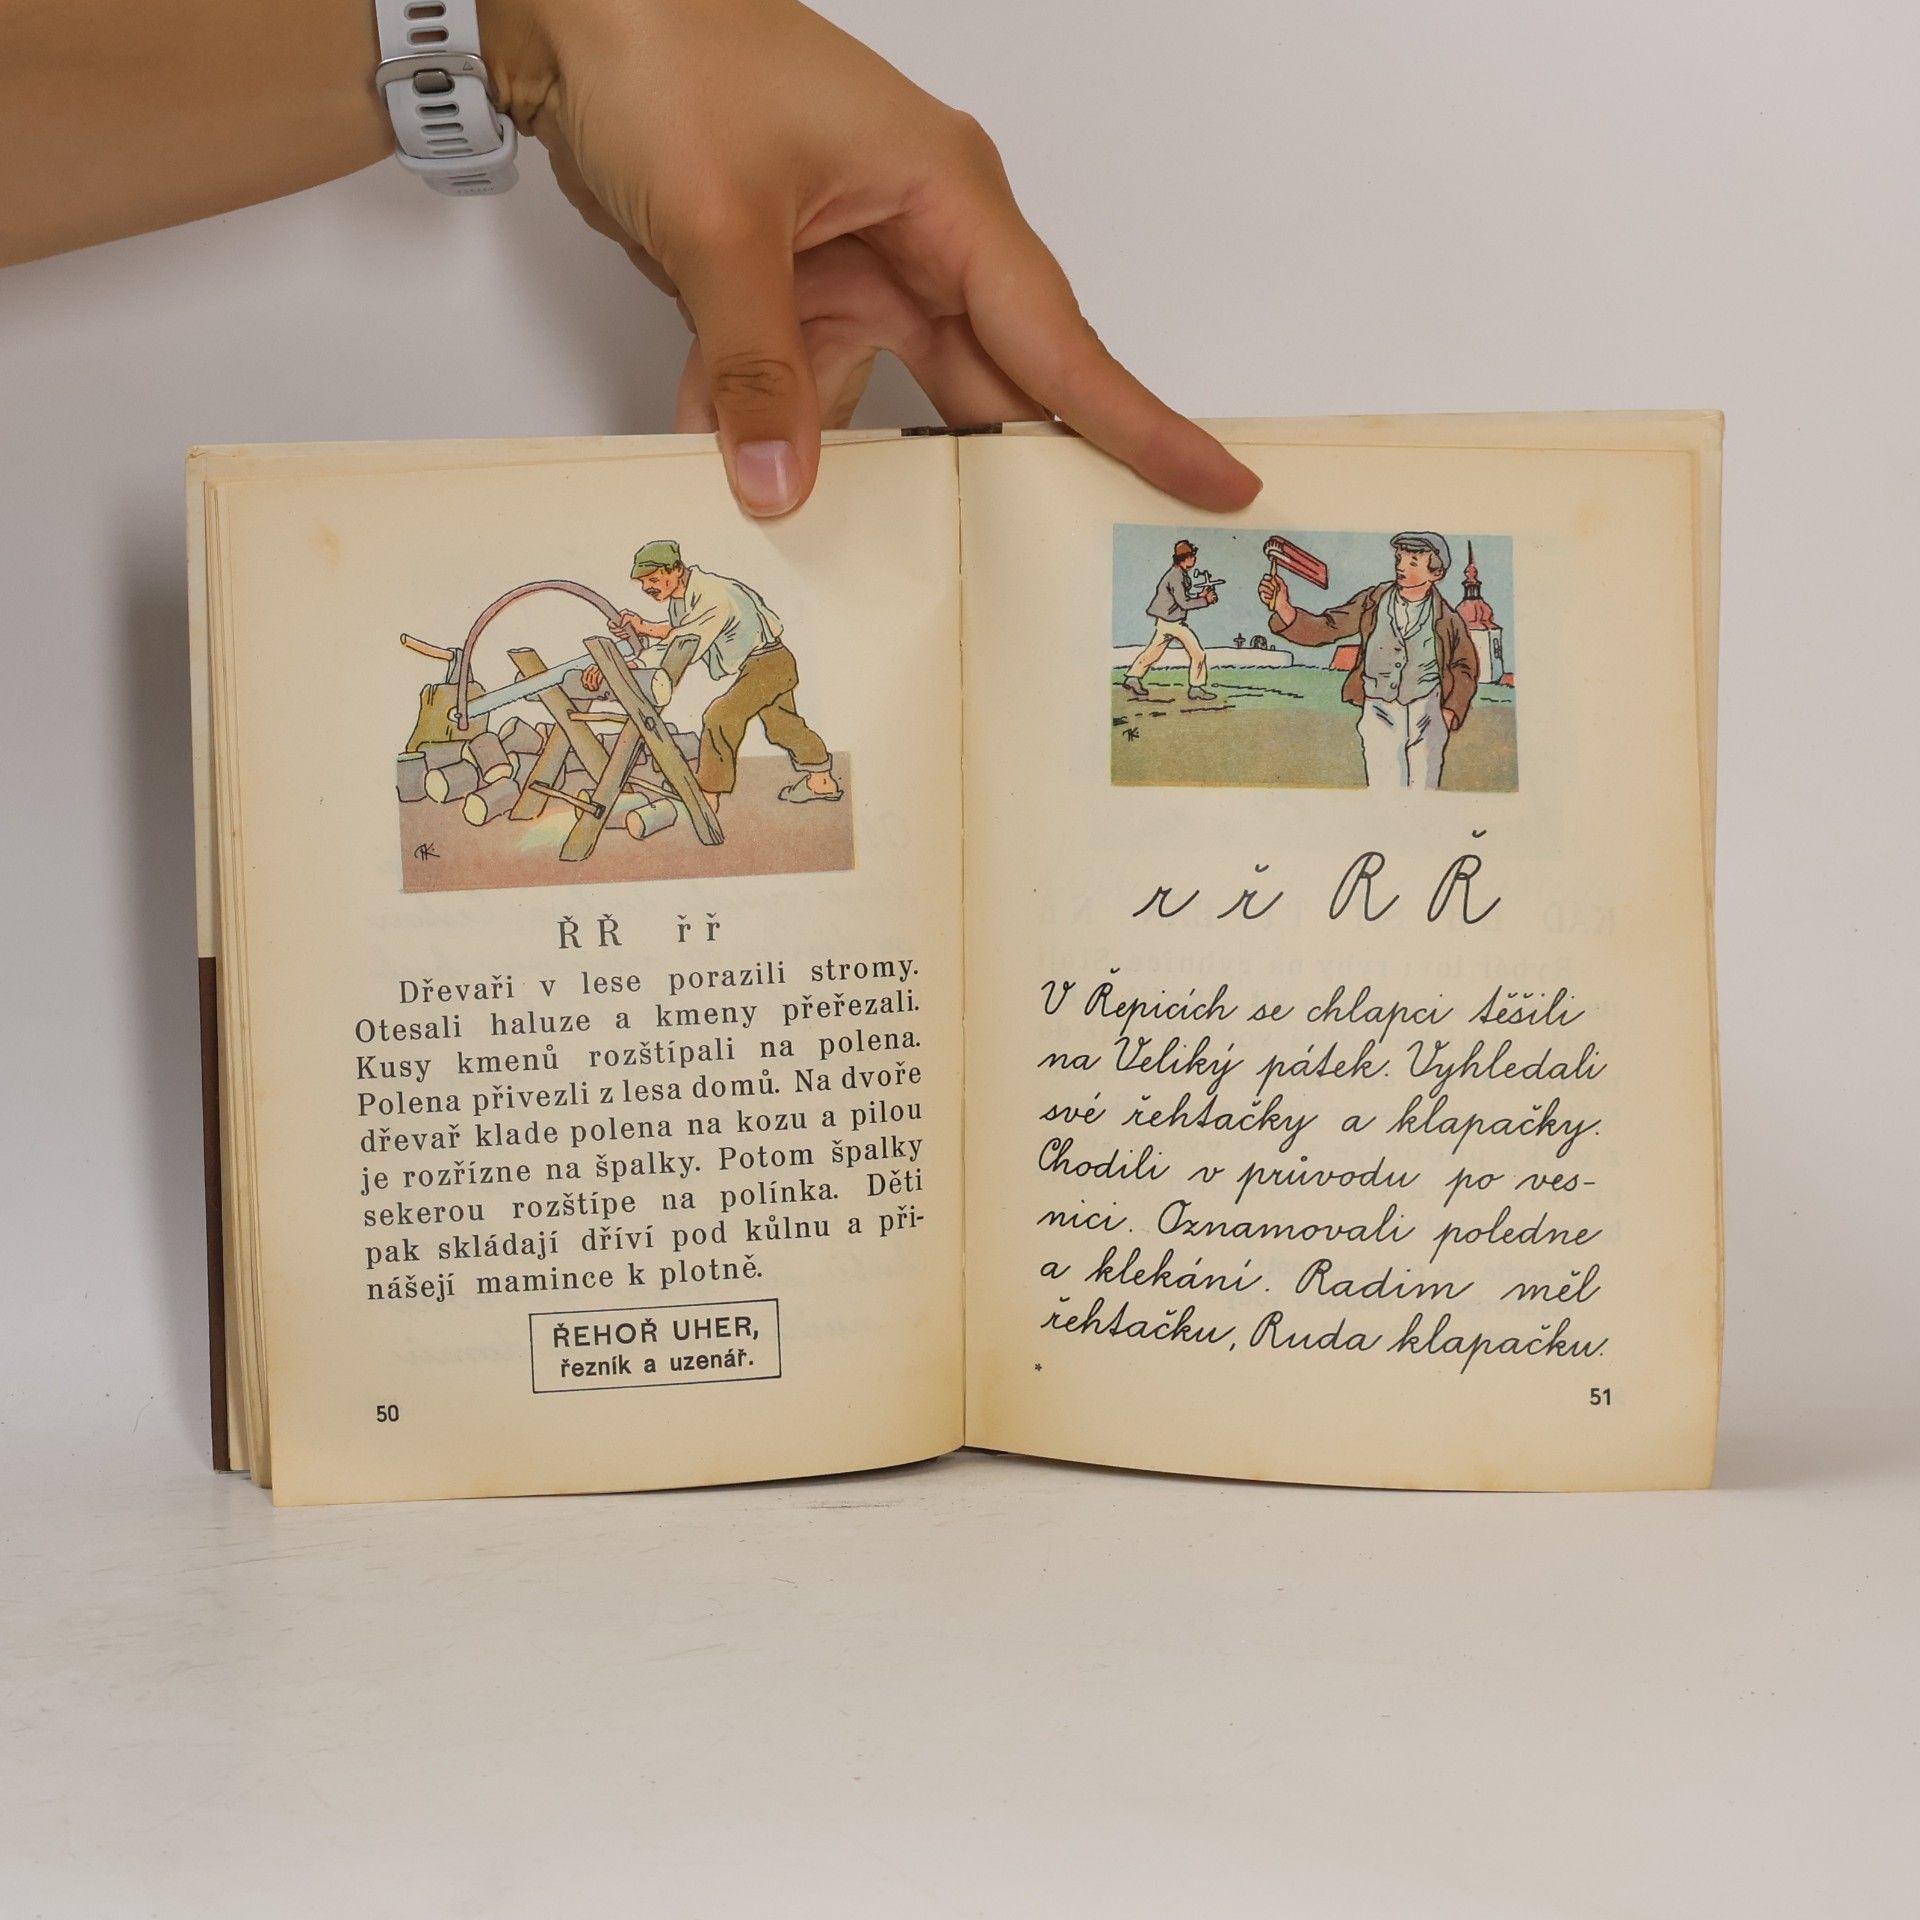 Ř Ř ř ř
Dřevaři v lese porazili stromy.
Otesali haluze a kmeny přeřezali.
Kusy kmenů rozštípali na polena.
Polena přivezli z lesa domů. Na dvoře
dřevař klade polena na kozu a pilou
je rozřízne na špalky. Potom špalky
sekerou rozštípe na polínka. Děti
pak skládají dříví pod kůlnu a při-
nášejí mamince k plotně.
ŘEHOŘ UHER,
řezník a uzenář.
50
r ř R Ř
V Řepicích se chlapci těšili
na Veliký pátek. Vyhledali
své řehtačky a klapačky.
Chodili v průvodu po ves-
nici. Oznamovali poledne
a klekání. Radim měl
řehtačku, Ruda klapačku.
*
51